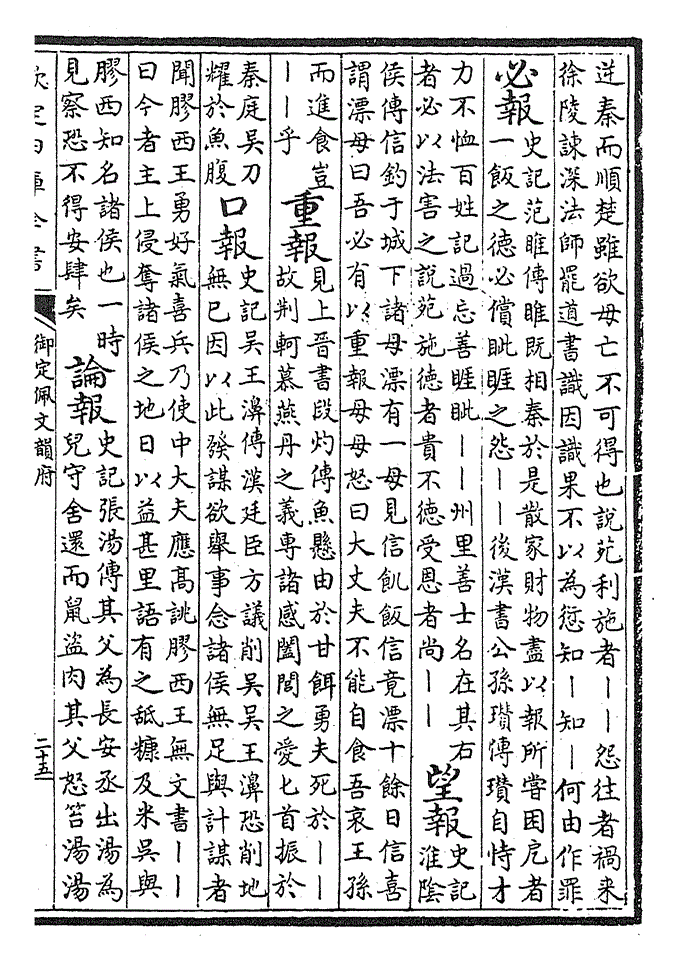 逆秦而順楚雖欲毋亡不可得也說苑利施者||怨往者禍来
徐陵諫深法師罷道書識因識果不以為愆知|知|何由作罪
必報
史記范睢傳睢既相秦於是散家財物盡以報所嘗困戹者
一飯之德必償眦睚之怨||後漢書公孫瓚傳瓚自恃才
力不恤百姓記過忘善睚眦||州里善士名在其右
者必以法害之說苑施德者貴不德受恩者尚||
望報
史記
淮陰
侯傳信釣于城下諸母漂有一母見信飢飯信竟漂十餘日信喜
謂漂母曰吾必有以重報母母怒曰大丈夫不能自食吾哀王孫
而進食豈
||乎
重報
見上晉書段灼傳魚懸由於甘餌勇夫死於||
故荆軻慕燕丹之義專諸感闔閭之愛匕首振於
秦庭吳刀
耀於魚腹
口報
史記吳王濞傳漢廷臣方議削吳吳王濞恐削地
無已因以此發謀欲舉事念諸侯無足與計謀者
聞膠西王勇好氣喜兵乃使中大夫應高誂膠西王無文書||
曰今者主上侵奪諸侯之地日以益甚里語有之舐糠及米吳與
膠西知名諸侯也一時
見察恐不得安肆矣
論報
史記張湯傳其父為長安丞出湯為
兒守舍還而鼠盜肉其父怒笞湯湯
欽定四庫全書
御定佩文韻府
二十五